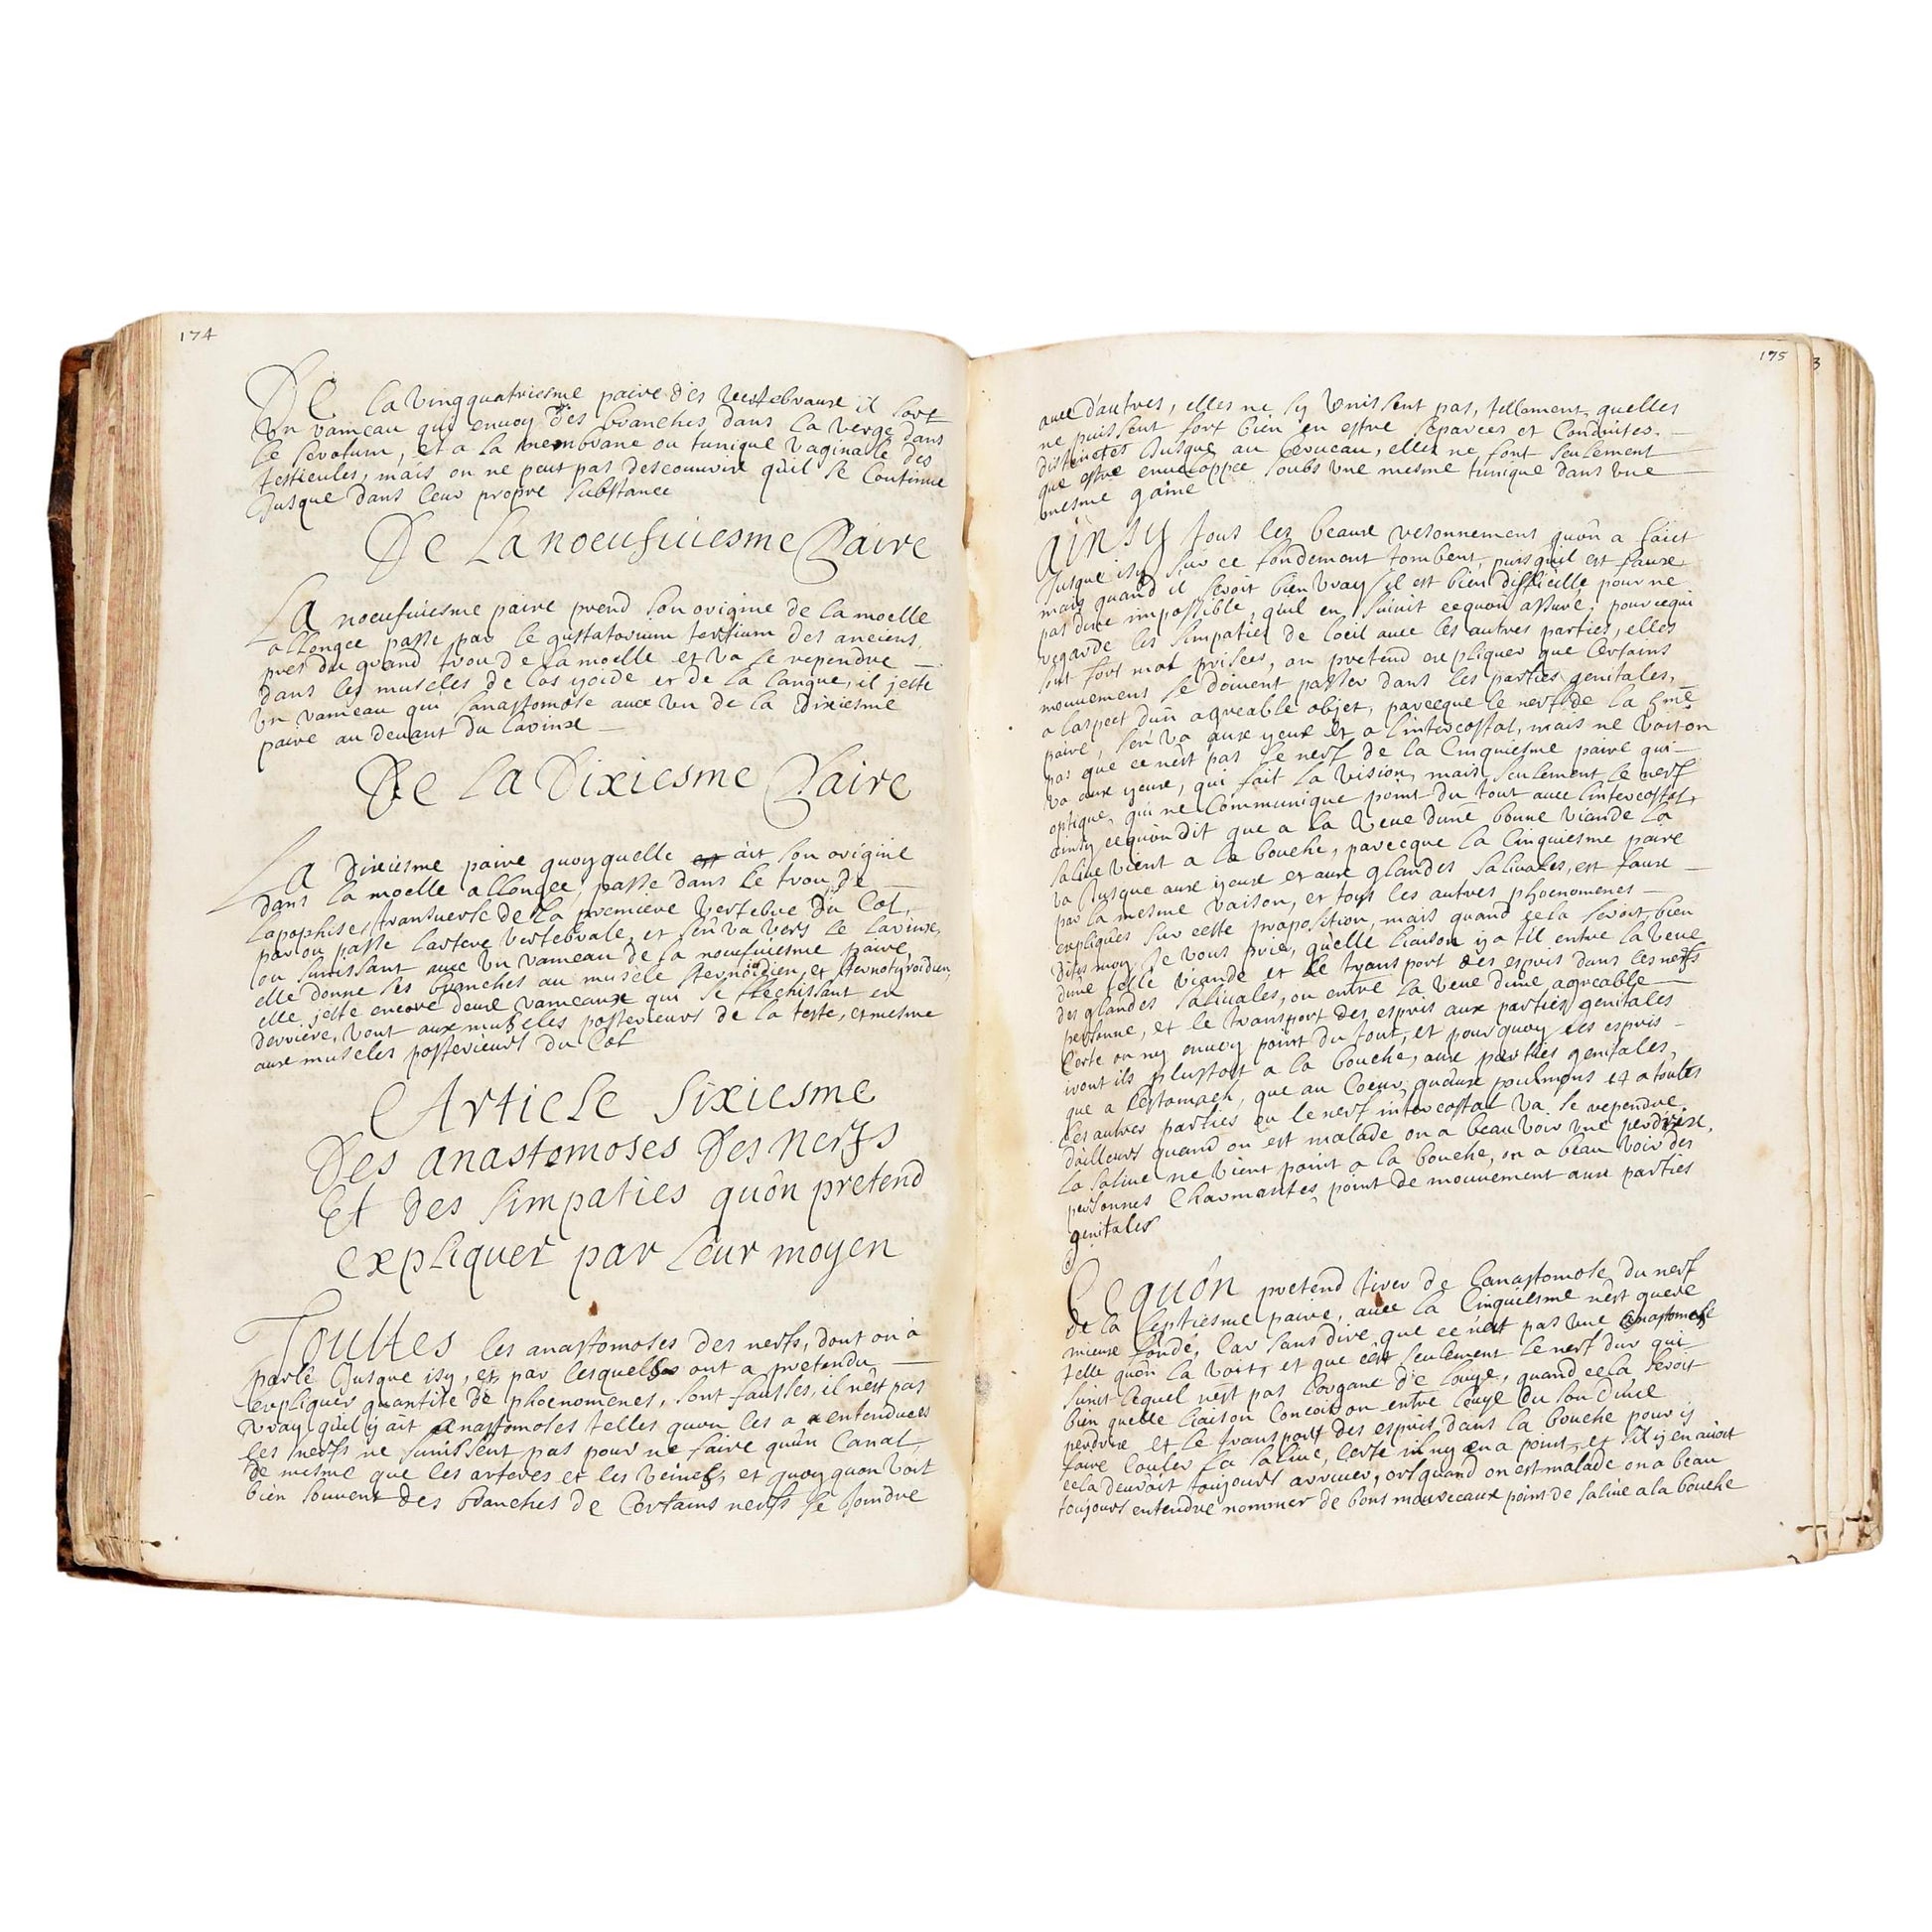 174
De la vingquatriesme paire des vertebraux il sort
Un rameau qui envoy des branches dans la verge dans
le scrotum, et a la membrane ou tunique vaginale des
testicules, mais on ne peut pas descouvrir quil se continue
Jusque dans leur propre substance
De La noeufuiesme Paire
La noeufuiesme paire prend son origine de la moelle
allongee passe par le gustatorium tertium des anciens,
pres du grand trou de la moelle et va se rependre —
dans les muscles de los yoide et de la langue, il jette
Un rameau qui sanastomose auec un de la dixiesme
paire au deuant du larinx —
De La Dixiesme Paire
La dixiesme paire quoyquelle est ait son origine
dans la moelle allongee, passe dans le trou de —
lapophise transuerse de la premiere vertebre du Col,
par ou passe lartere vertebrale, et sen va vers le larinx,
ou sunissant auec un rameau de la noeufuiesme paire,
elle donne ses branches au muscle sternoidien, et sternotyroidien,
elle jette encore deux rameaux qui se flechissant en
derriere, vont aux muscles posterieurs de la teste, et mesme
aux muscles posterieurs du Col
Article Sixiesme
Des anastomoses Des Nerfs
Et des simpaties quôn pretend
expliquer par leur moyen
Touttes les anastomoses des nerfs, dont on a
parlé Jusque isy, et par lesquelles ont a pretendu —
expliquer quantite de phoenomenes, sont fausses, il nest pas
vray quil y ait anastomoses telles quon les a entendues
les nerfs ne sunissent pas pour ne faire quun Canal,
de mesme que les arteres et les veines, et quoy quon voit
bien souvent des branches de Certains nerfs se Joindre
175
3
auec dautres, elles ne sy unissent pas, tellement quelles
ne puissent fort bien en estre separees et Conduites. —
distinctes Jusque au Cerueau, elles ne font seulement —
que estre enueloppee soubs une mesme tunique dans une
mesme gaine
Ainsy tous les beaux resonnement quôn a faict
Jusque isy sur ce fondement tombent, puisquil est faux
mais quand il seroit bien vray, il est bien difficille pour ne
pas dire impossible, quil en suiuit cequon assure, pour cequi
regarde les simpaties de loeil auec les autres parties, elles
sont fort mal prises, on pretend expliquer que Certains
mouuemens se doiuent passer dans les parties genitales,
a laspect dun agreable objet, parceque le nerf de la 5me
paire, sen va aux yeux et a lintercostal, mais ne voit on
pas que ce nest pas le nerf de la Cinquiesme paire qui —
va aux yeux, qui fait la vision, mais seulement le nerf
optique, qui ne Communique point du tout auec lintercostal,
ainsy cequon dit que a la veue dune bonne viande la
saliue vient a la bouche, parceque la Cinquiesme paire
va Jusque aux yeux et aux glandes saliuales, est faux —
par la mesme raison, et tous les autres phoenomenes —
expliqués sur cette proposition, mais quand cela seroit bien
dites moy Je vous prie, quelle liaison y a til entre la veue
dune telle viande et le transport des espris dans les nerfs
des glandes saliuales, ou entre la veue dune agreable —
personne, et le transport des espris aux parties genitales
Certe on ny enuoy point du tout, et pourquoy les espris —
iront ils plustost a la bouche, aux parties genitales,
que a lestomach, que au Coeur, quaux poulmons et a toutes
les autres parties ou le nerf intercostal va se rependre
dailleurs quand on est malade on a beau voir une perdrix,
la saliue ne vient point a la bouche, on a beau voir des
personnes Charmantes, point de mouuement aux parties
genitales
Ce quôn pretend tirer de lanastomose du nerf
de la septiesme paire, auec la Cinquiesme nest guere
mieux fondé, Car sans dire que ce nest pas une anastomose
telle quon la voit, et que cest seulement le nerf dur qui —
sunit lequel nest pas lorgane de louye, quand cela seroit
bien quelle liaison Concoit on entre louye du son dune
perdrix et le transport des esprits dans la bouche pour y
faire Couler la saliue, Certe il ny en a point, et sil y en auoit
cela deuroit toujours arriuer, or quand on est malade on a beau
toujours entendre nommer de bons mourceaux point de saliue a la bouche